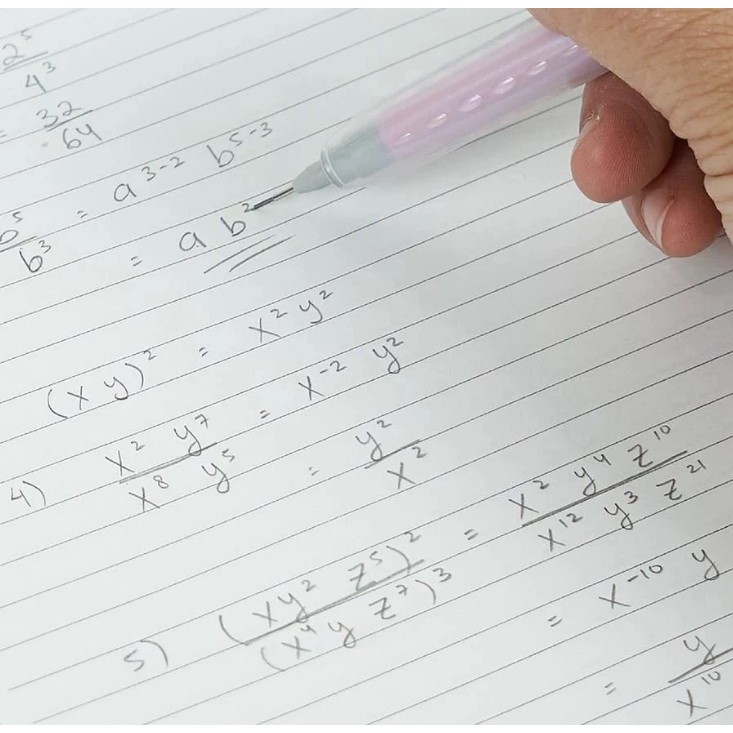 2⁵/4³
= 32/64
b⁵/b³ = a³⁻² b⁵⁻³
= a b²
(x y)² = x² y²
4) x² y⁷ / x⁸ y⁵ = x⁻² y²
= y²/x²
5) (xy² z⁵)² / (x⁴ y z⁷)³ = x² y⁴ z¹⁰ / x¹² y³ z²¹
= x⁻¹⁰ y
= y/x¹⁰